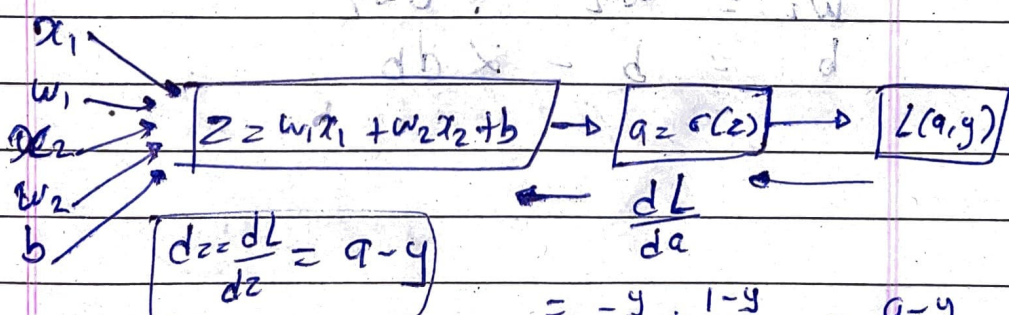 x₁
w₁
x₂
w₂
b
z = w₁x₁ + w₂x₂ + b → a = σ(z) → L(a,y)
dL/da
dz = dL/dz = a-y
= -y . 1-y a-y